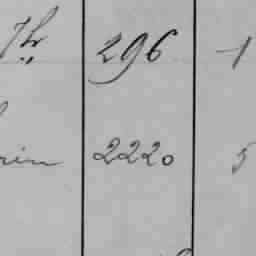 Thr 296 1
rin 2220 5